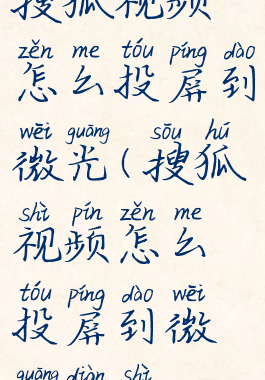 搜狐视频
zěn me tóu píng dào
怎么投屏到
wēi guāng sōu hú
微光(搜狐
shì pín zěn me
视频怎么
tóu píng dào wēi
投屏到微
guāng diàn shì